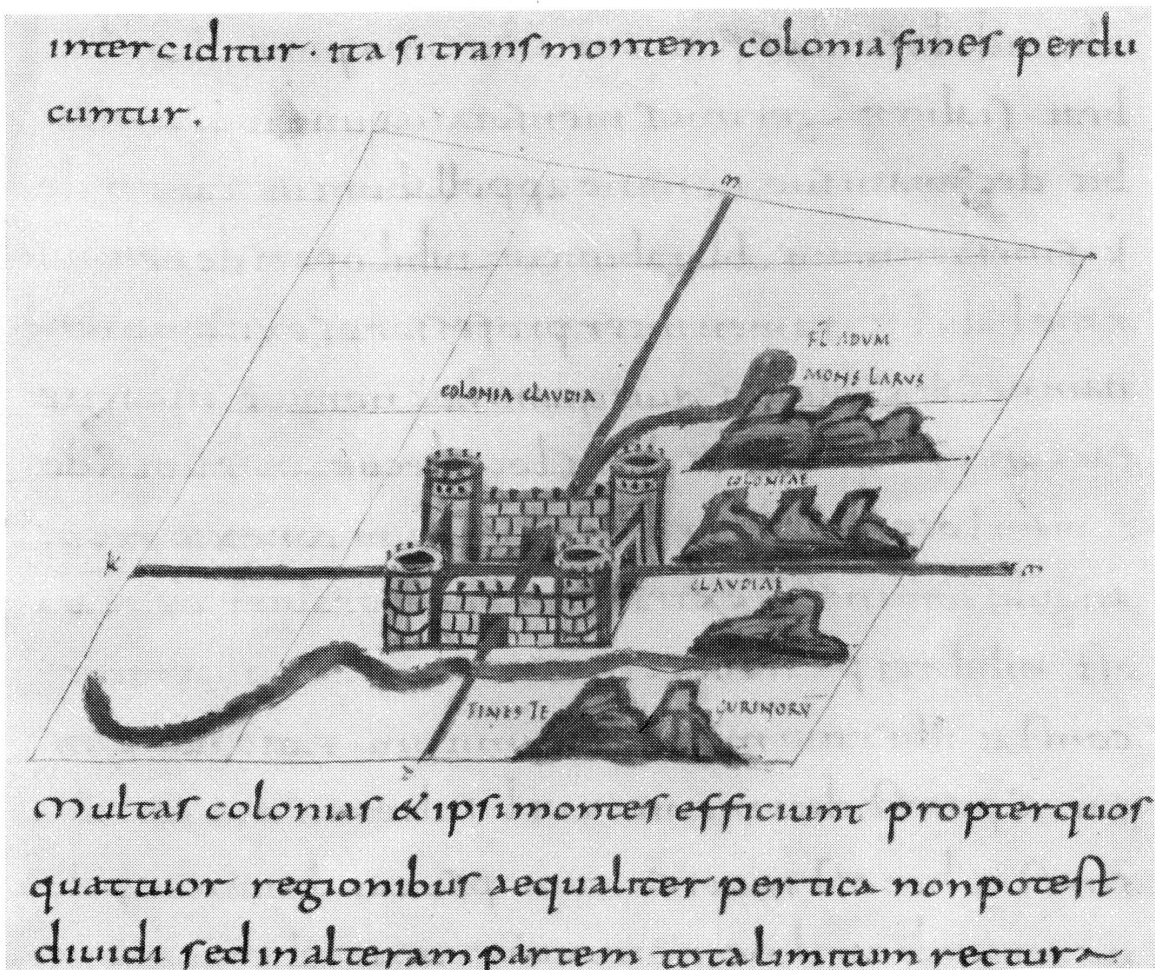 interciditur. ita sitransmontem coloniafines perdu
cuntur.
m
FL ADUM
MONS LARUS
COLONIA CLAUDIA
COLONIAE
k
m
CLAUDIAE
FINES TE
GURINORU
multas colonias & ipsimontes efficiunt propterquos
quattuor regionibus aequaliter pertica nonpotest
diuidi sedinalteram partem totalimitum rectura